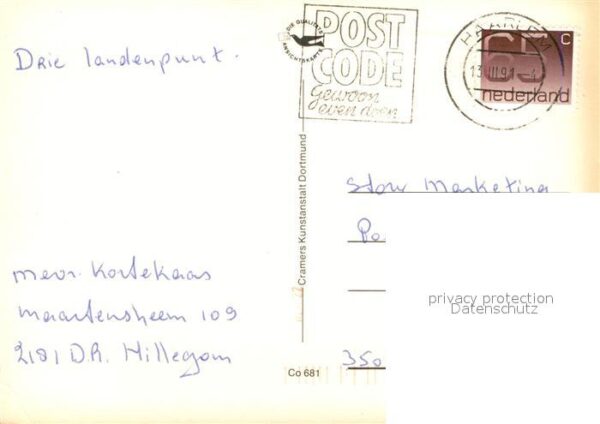 Drie landenpunt.
mevr. Kortekaas
Maartensheem 109
2181 D.R. Hillegom
DIE QUALITÄTS
ANSICHTSKARTE
POST
CODE
Gewoon
even doen
HAARLEM
13.III.91
65
C
nederland
Cramers Kunstanstalt Dortmund
Co 681
Marketing
350
privacy protection
Datenschutz